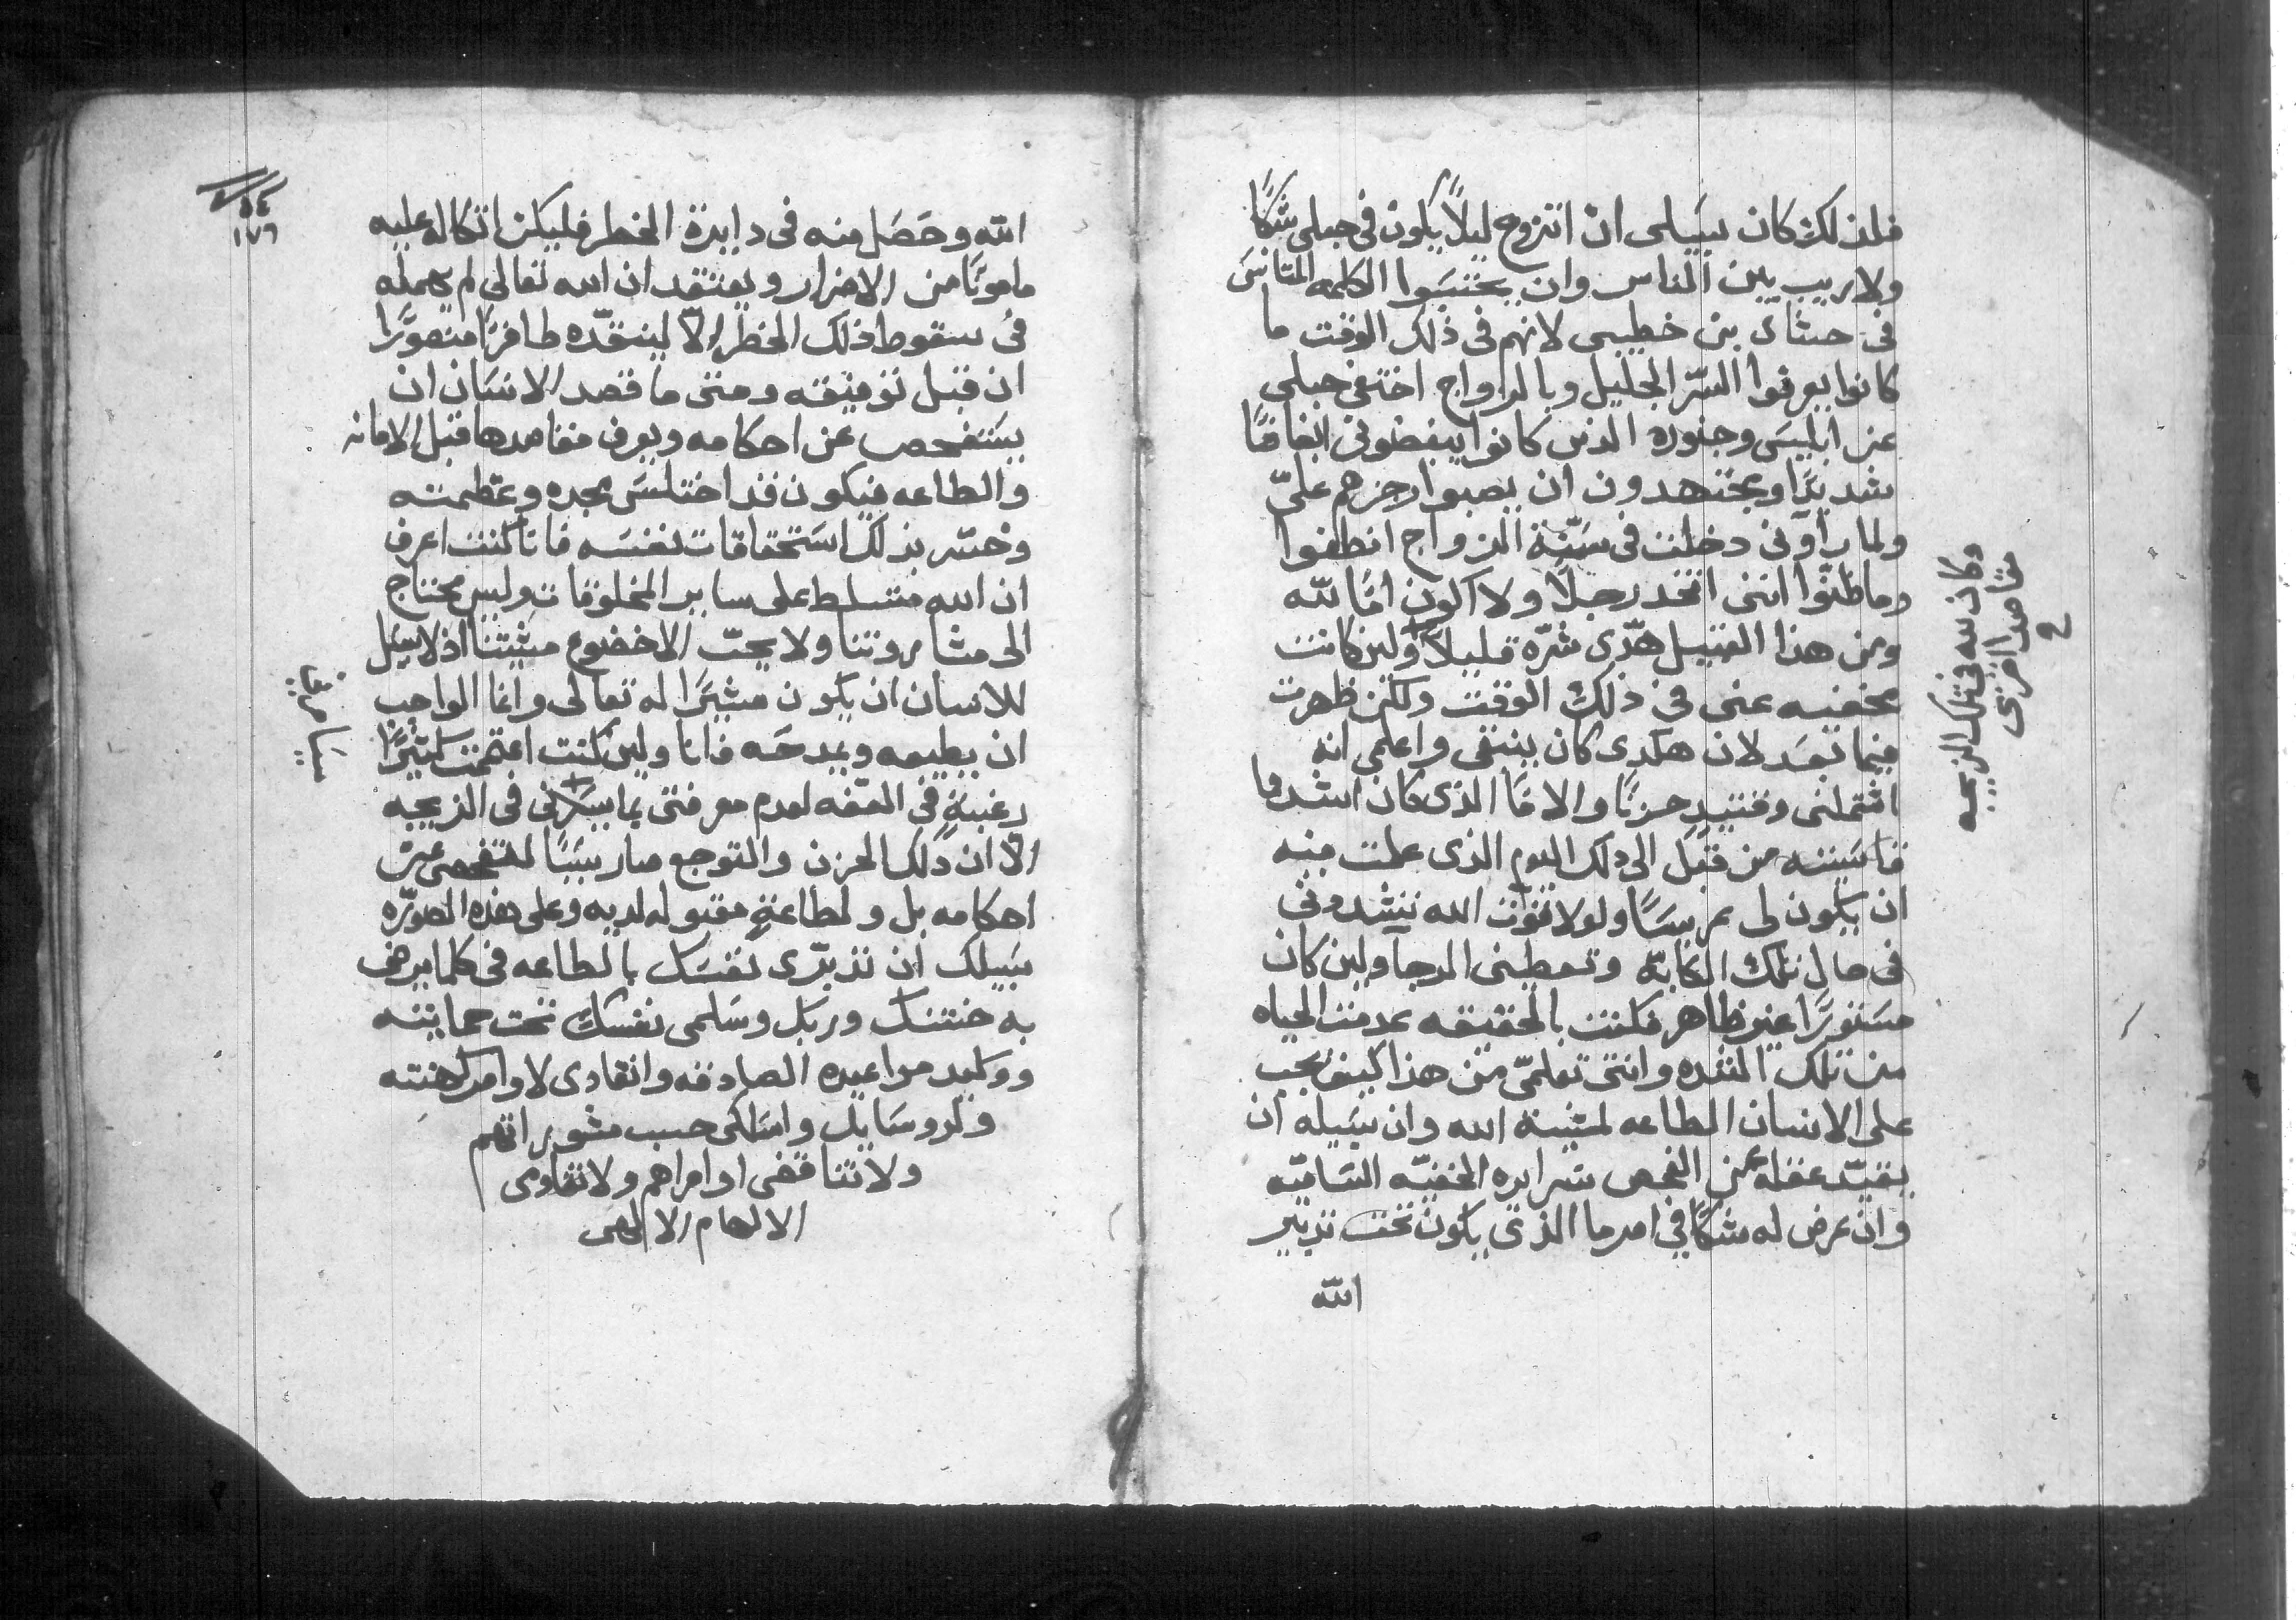 فلذلك كان سبيلى ان اتزوج ليلاً يكون فى حبلى شكًا
ولا ريب بين الناس وان يحتسبوا الكلمه المتانس
فى حشاى بن خطيبى لانهم فى ذلك الوقت ما
كانوا يعرفوا السّر الجليل وبالزواج اختفى حبلى
عن ابليس وجنوده الذين كانوا يبغضونى ابغاضًا
شديدًا ويجتهدون ان يصبوا رجزهم علىّ
ولما راونى دخلت فى سنّة الزواج انطفوا
وما ظنّوا اننى اتخذ رجلاً ولا اكون امًا لله
ومن هذا القبيل هدّى شرّه قليلاً ولين كانت
مخفيه عنى فى ذلك الوقت ولكن ظهرت
فيما بعد لان هكدى كان ينبغى واعلمى انه
اشتملنى وقتيد حزنًا والامًا الذى كان اشد ما
قاسيته من قبل الى ذلك اليوم الذى علمت منه
ان يكون لى عريسًا ولولا قوّة الله تنشدونى
فى حال تلك الكابّه وتعطينى الرجا ولين كان
مستورًا غير ظاهر فكنت بالحقيقه عدمت الحياه
من تلك الشده وانتى تعلمّى من هذا كيف يجب
على الانسان الطاعه لمشية الله وان سبيله ان
يقيّد عقله عن الفحص سرايره الخفيّه الساميّه
وان عرض له شكًا فى امر ما الذى يكون تحت تدبير
الله
وكان لله فى تلك الزيجه
مقاصد اخرى
الله وحصَل منه فى دايرة الخطر فليكن اتكاله عليه
مامونًا من الاضرار ويعتقد ان الله تعالى لم يهمله
فى سقوط ذلك الخطر الّا لينقّده ظافرًا منصورًا
ان قبل توفيقه ومتى ما قصد الانسان ان
يستفحص عن احكامه ويعرف مقاصدها قبل الامانه
والطاعه فيكون قد اختلس مجده وعظمته
وخسر بذلك استحقاقات نفسه فانا كنت اعرف
ان الله متسلط على ساير المخلوقات وليس محتاج
الى مشاروتنا ولا يحبّ الا خضوع مشيتنا اذ لا سبيل
للانسان ان يكون مشيرًا له تعالى وانما الواجب
ان يطيعه ويمدحه فانا ولين كنت اعتممت كثيرًا
رغبةٍ فى العفه لعدم معرفتى بما سيرانى فى الزيجه
الّا ان ذلك الحزن والتوجع صار سببًا لتفحصى عن
احكامه بل ولطاعةٍ مقبوله لديه وعلى هذه الصورّه
سبيلك ان تدبّرى نفسك بالطاعه فى كلما يرضى
به ختنك وربك وسلمى نفسك تحت حمايته
ووكيد مواعيده الصادقه وانقادى لاوامر كهنته
ولروسايك واسلكى حسب مشوراتهم
ولا تناقضى اوامراهم ولا تقاومى
الالهام الالهى
١٧٦